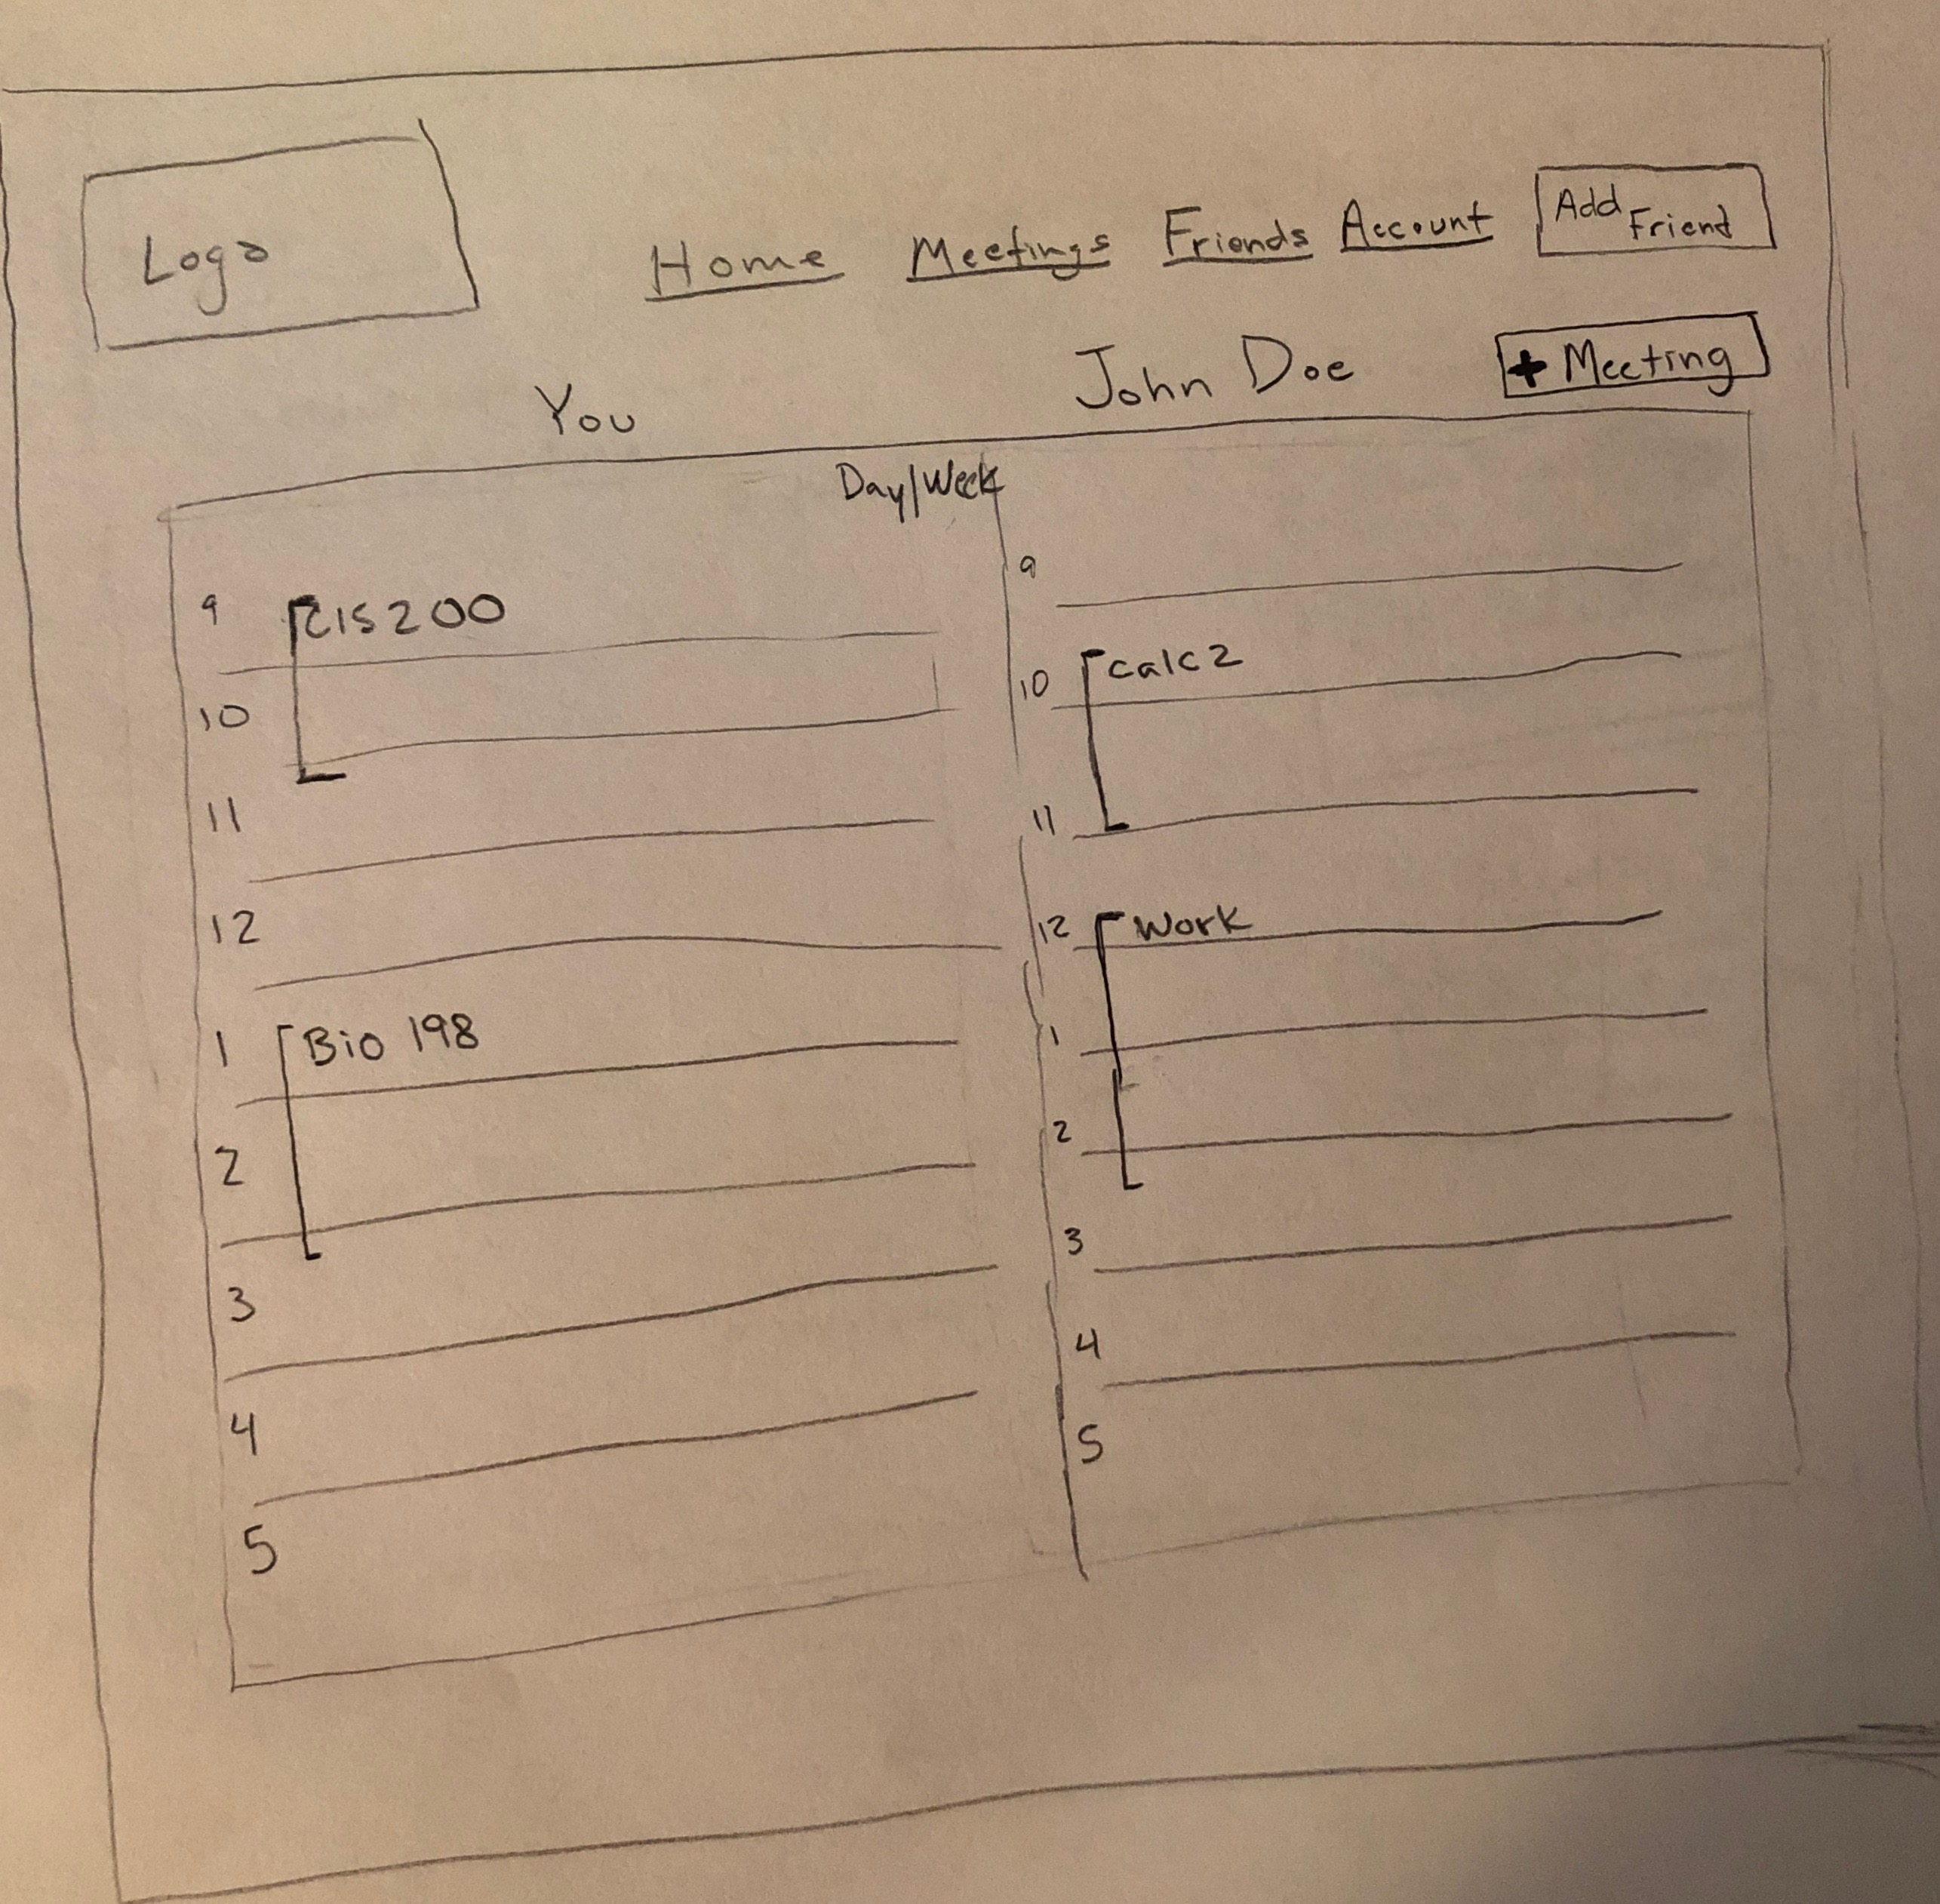 Logo
Home Meetings Friends Account Add Friend
You John Doe + Meeting
Day/Week
9 CIS 200
10
11
12
1 Bio 198
2
3
4
5
9
10 Calc 2
11
12 Work
1
2
3
4
5